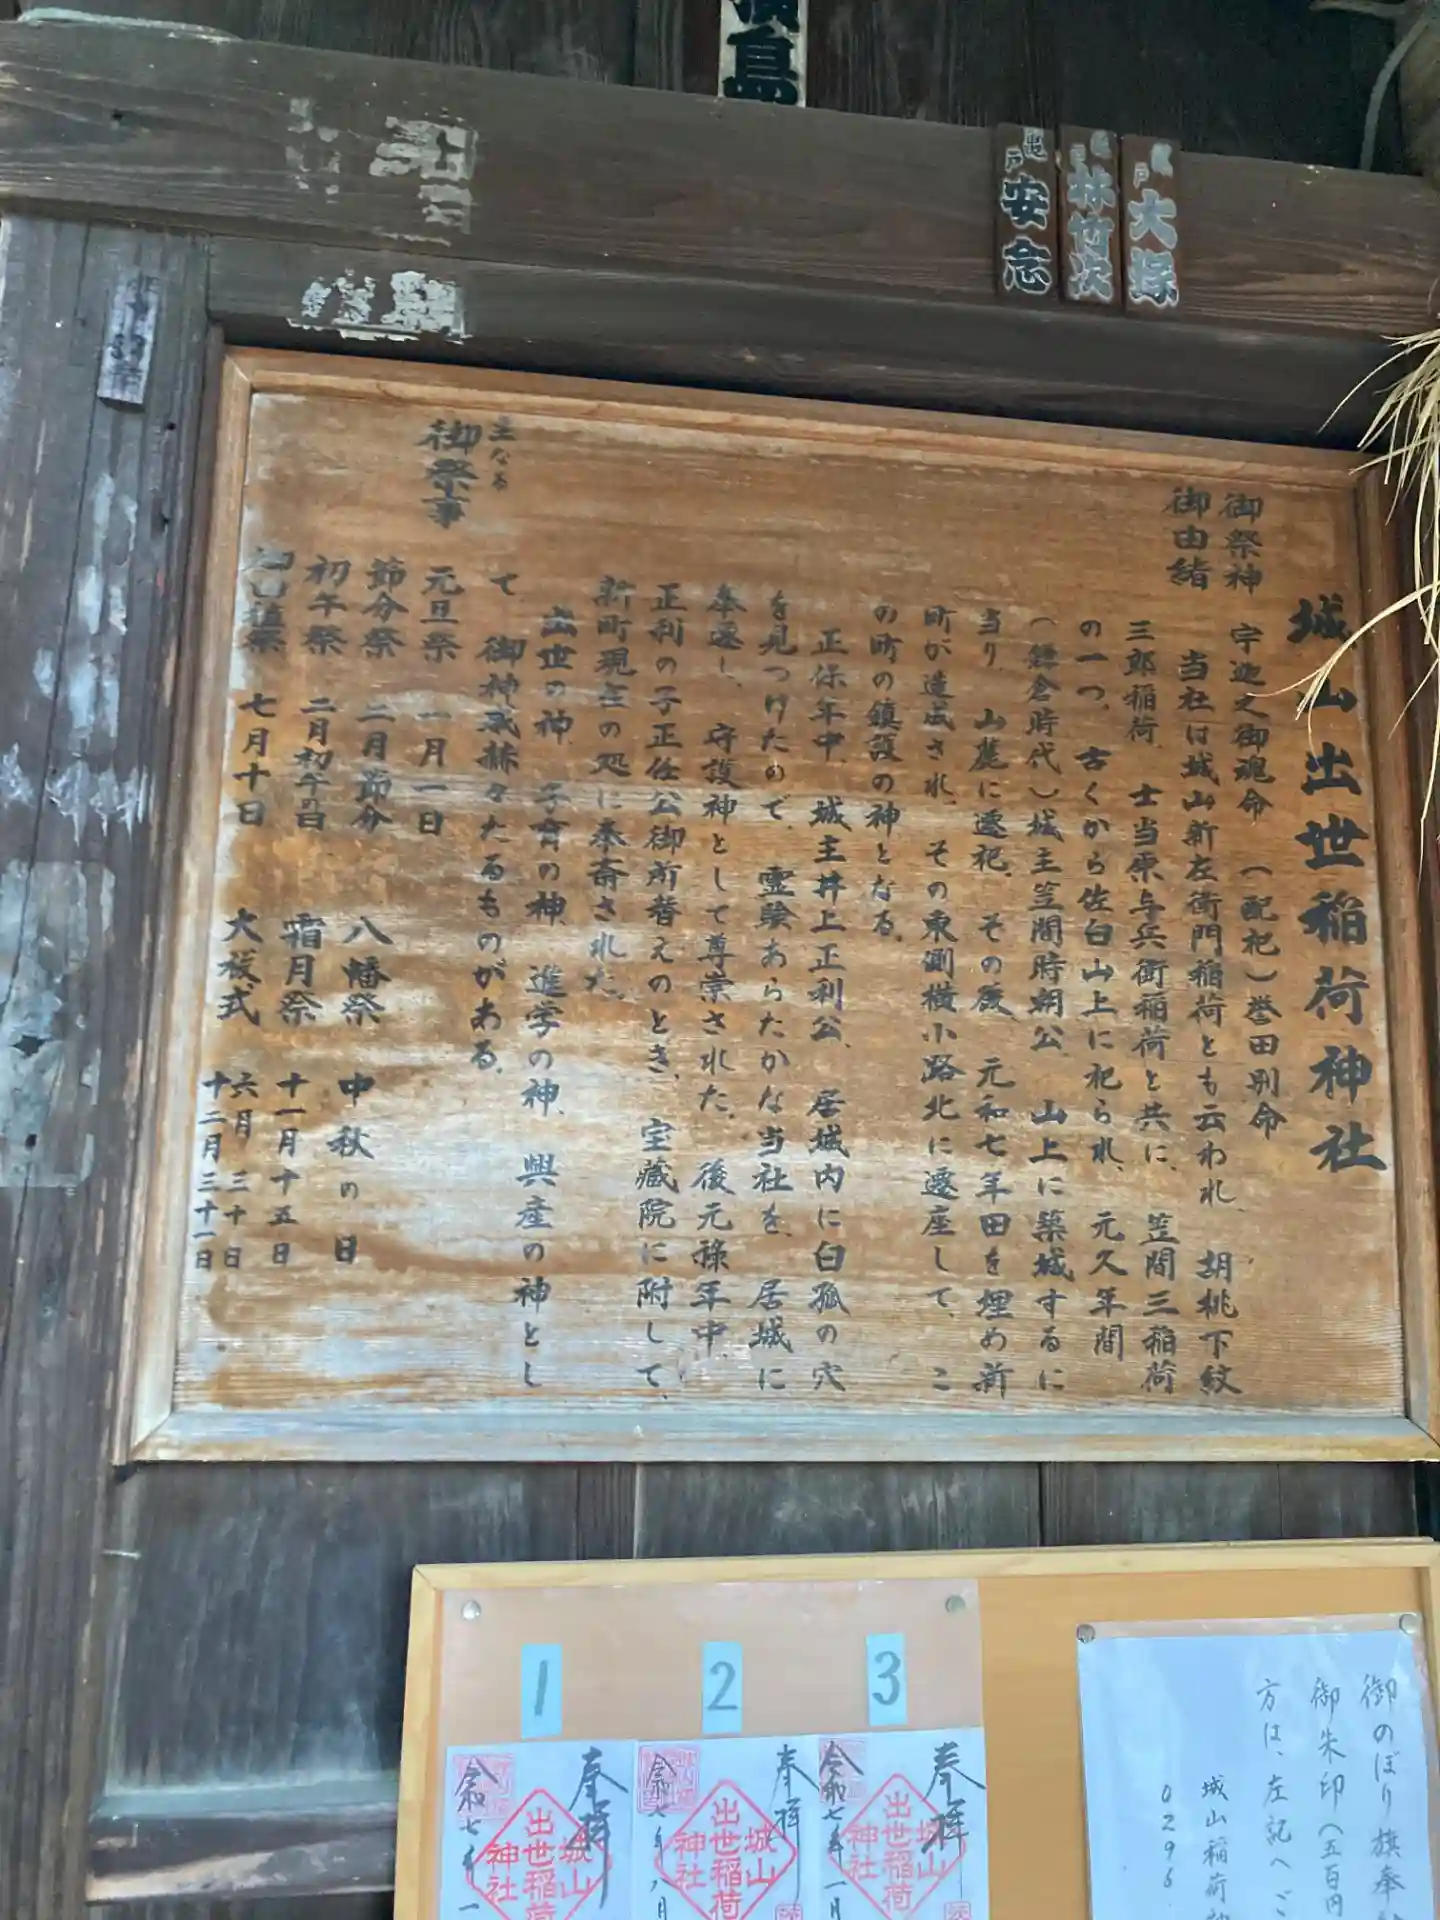 島
大塚
林竹次
亀戸
安念
城山出世稲荷神社
御祭神 宇迦之御魂命 (配祀)誉田別命
御由緒 当社は城山新左衛門稲荷とも云われ、胡桃下紋
三郎稲荷、士当原与兵衛稲荷と共に、笠間三稲荷
の一つ。古くから佐白山上に祀られ、元久年間
(鎌倉時代)城主笠間時朝公、山上に築城するに
当り、山麓に遷祀。その後、元和七年田を埋め新
町が造成され、その東側横小路北に遷座して、こ
の町の鎮護の神となる。
正保年中、城主井上正利公、居城内に白狐の穴
を見つけたので、霊験あらたかな当社を、居城に
奉遷し、守護神として尊崇された。後元禄年中、
正利の子正任公御所替えのとき、宝蔵院に附して、
新町現在の処に奉斎された。
出世の神、子育の神、進学の神、興産の神とし
て、御神威赫々たるものがある。
主なる
御祭事
元旦祭 一月一日
節分祭 二月節分
初午祭 二月初午日
七月十日
八幡祭 中秋の日
霜月祭 十一月十五日
大祓式 六月三十日
十二月三十一日
1
2
3
奉拝
城山
出世稲荷
神社
令和七年一
奉拝
城山
出世稲荷
神社
令和七年八月
奉拝
城山
出世稲荷
神社
令和七年一月
御のぼり旗奉
御朱印(五百円
方は、左記へご
城山稲荷神
0296